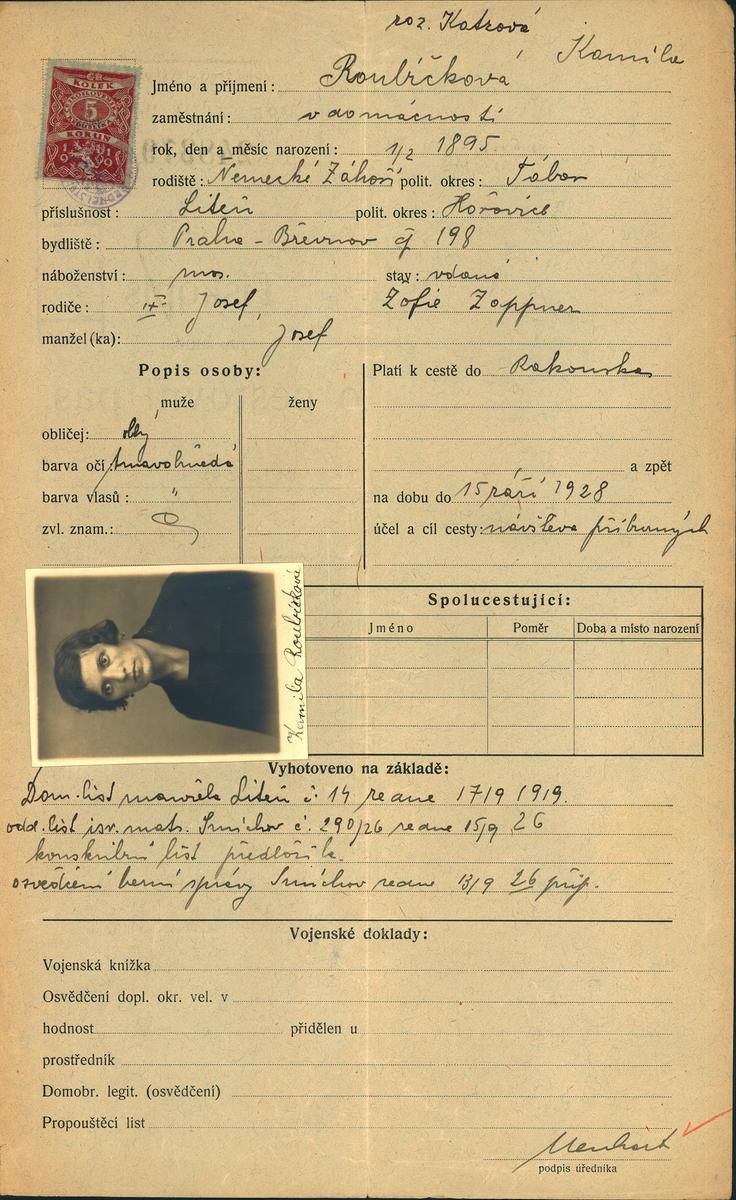 roz. Katzová
Jméno a příjmení: Roubíčková Kamila
zaměstnání: v domácnosti
rok, den a měsíc narození: 1/2 1895
rodiště: Německé Záhoří polit. okres: Tábor
příslušnost: Liteň polit. okres: Hořovice
bydliště: Praha - Břevnov čj 198
náboženství: mos. stav: vdaná
rodiče: Josef, Žofie Zappner
manžel (ka): Josef
KOLEK
5
KORUN
Popis osoby:
muže ženy
obličej:
barva očí tmavohnědá
barva vlasů: "
zvl. znam.:
Platí k cestě do Rakouska
a zpět
na dobu do 15 září 1928
účel a cíl cesty: návštěva příbuzných
Kamila Roubíčková
Spolucestující:
Jméno Poměr Doba a místo narození
Vyhotoveno na základě:
Dom. list manžela Liteň č. 14 ze dne 17/9 1919.
odd. list isr. mat. Smíchov č. 290/26 ze dne 15/9 26
konskribní list předložila.
osvědčení berní správy Smíchov ze dne 13/9 26 přip.
Vojenské doklady:
Vojenská knížka
Osvědčení dopl. okr. vel. v
hodnost přidělen u
prostředník
Domobr. legit. (osvědčení)
Propouštěcí list
podpis úředníka